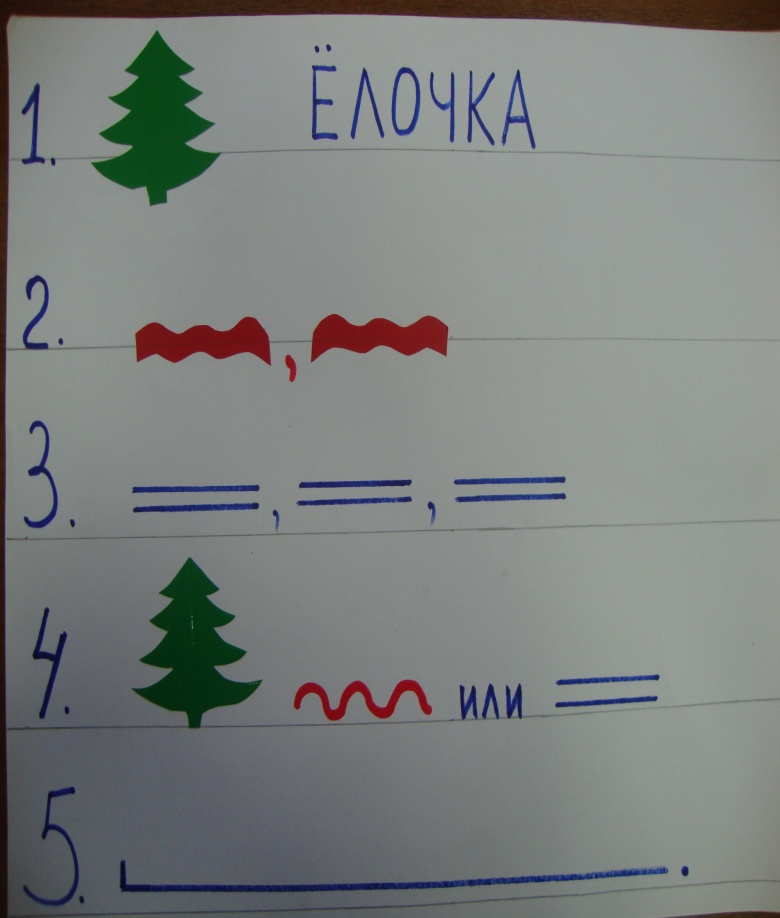 1. ЁЛОЧКА
2. ,
3. , ,
4. или
5. .